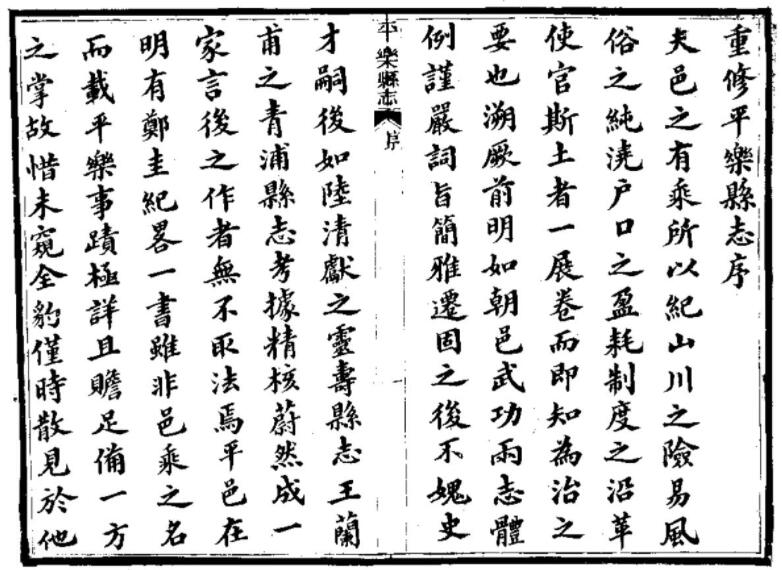 重修平樂縣志序
夫邑之有乘所以紀山川之險易風
俗之純澆户口之盈耗制度之沿革
使官斯土者一展卷而即知為治之
要也溯厥前明如朝邑武功兩志體
例謹嚴詞旨簡雅遷固之後不媿史
平樂縣志
序
才嗣後如陸清獻之靈壽縣志王蘭
甫之青浦縣志考據精核蔚然成一
家言後之作者無不取法焉平邑在
明有鄭圭紀畧一書雖非邑乘之名
而載平樂事蹟極詳且贍足備一方
之掌故惜未窺全豹僅時散見於他